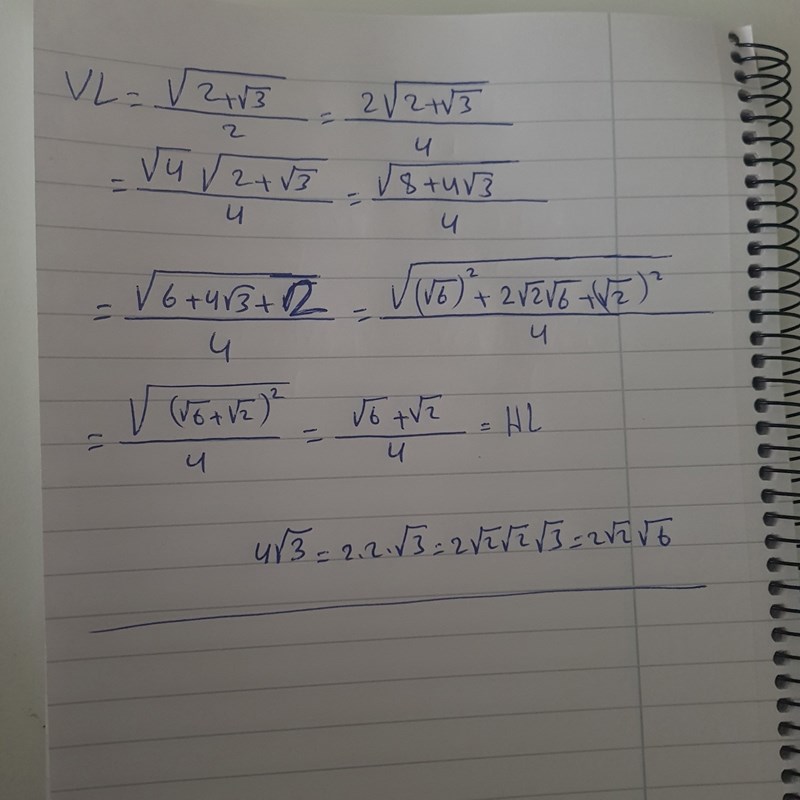 VL = √(2+√3)/2 = 2√(2+√3)/4
= √4 √(2+√3)/4 = √(8+4√3)/4
= √(6+4√3+2)/4 = √((√6)² + 2√2√6 + (√2)²)/4
= √((√6+√2)²)/4 = (√6+√2)/4 = HL
4√3 = 2.2.√3 = 2√2√2√3 = 2√2√6